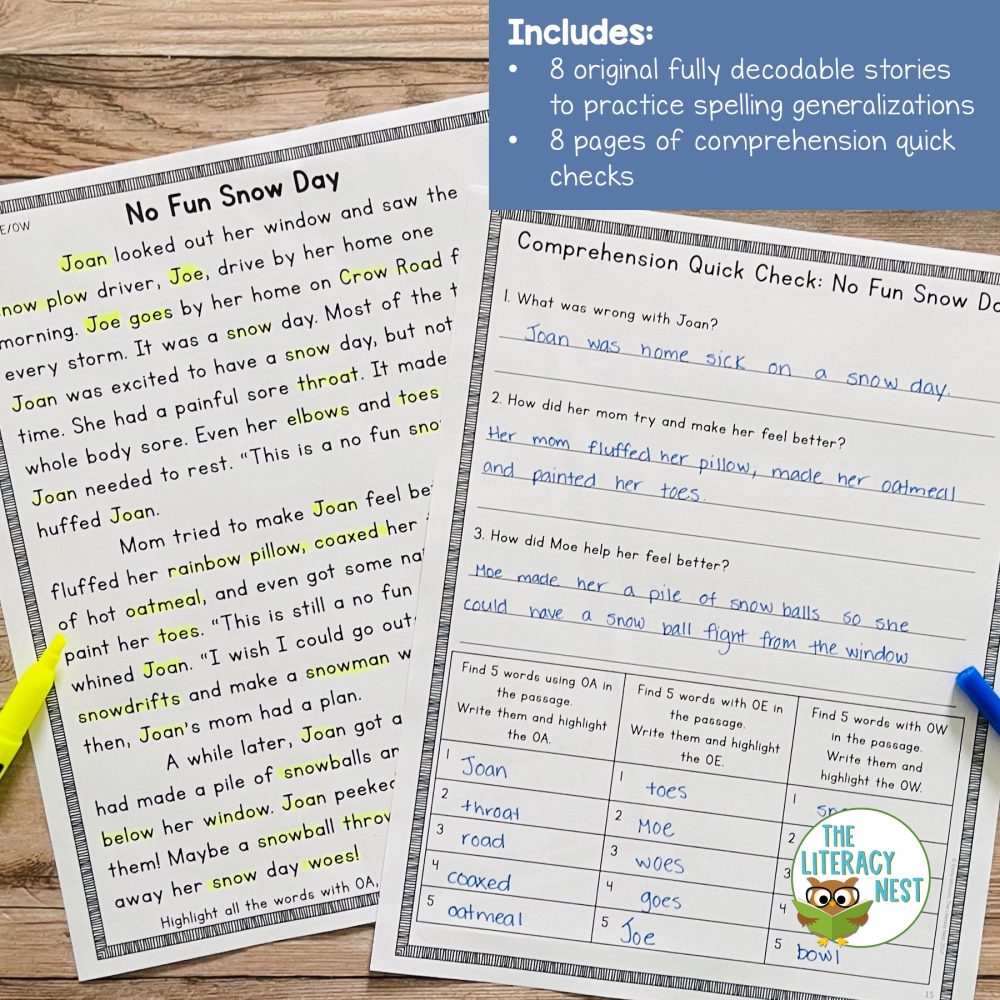 Includes:
• 8 original fully decodable stories
to practice spelling generalizations
• 8 pages of comprehension quick
checks
E/OW
No Fun Snow Day
Joan looked out her window and saw the
now plow driver, Joe, drive by her home one
morning. Joe goes by her home on Crow Road f
every storm. It was a snow day. Most of the t
Joan was excited to have a snow day, but not
time. She had a painful sore throat. It made
whole body sore. Even her elbows and toes
Joan needed to rest. “This is a no fun sno
huffed Joan.
Mom tried to make Joan feel be
fluffed her rainbow pillow, coaxed her
of hot oatmeal, and even got some na
paint her toes. “This is still a no fun
whined Joan. “I wish I could go out
snowdrifts and make a snowman w
then, Joan's mom had a plan.
A while later, Joan got a
had made a pile of snowballs an
below her window. Joan peeked
them! Maybe a snowball throw
away her snow day woes!
Highlight all the words with OA,
Comprehension Quick Check: No Fun Snow Da
1. What was wrong with Joan?
Joan was home sick on a snow day.
2. How did her mom try and make her feel better?
Her mom fluffed her pillow, made her oatmeal
and painted her toes.
3. How did Moe help her feel better?
Moe made her a pile of snow balls so she
could have a snow ball fight from the window
Find 5 words using OA in
the passage.
Write them and highlight
the OA.
1 Joan
2 throat
3 road
4 coaxed
5 oatmeal
Find 5 words with OE in
the passage.
Write them and highlight
the OE.
1 toes
2 Moe
3 woes
4 goes
5 Joe
Find 5 words with OW
in the passage.
Write them and
highlight the OW.
1 sn
2
3
4
5 bowl
THE
LITERACY
NEST
15